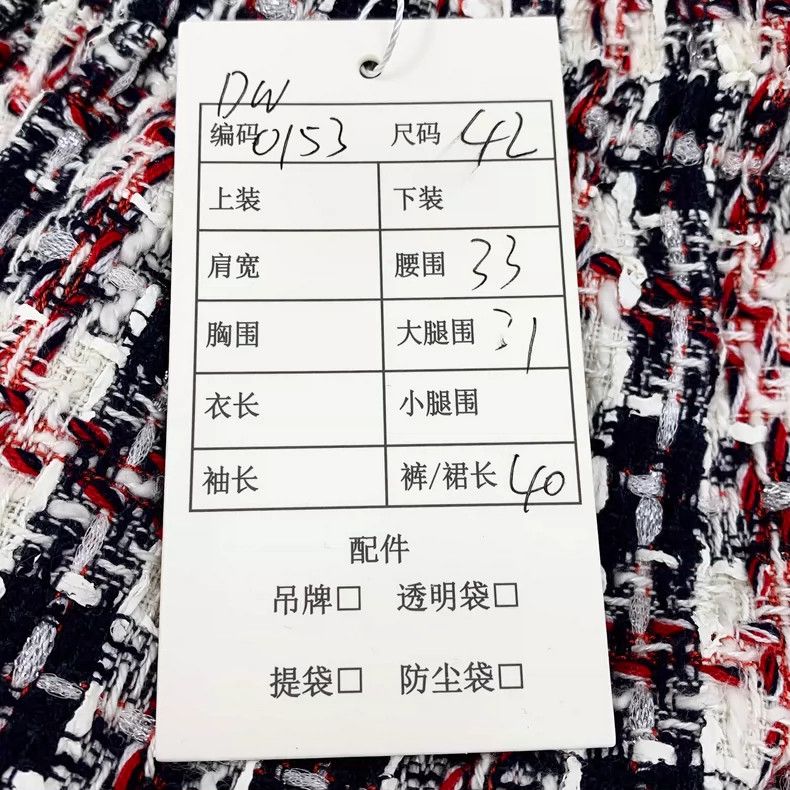 DW
编码 0153 尺码 42
上装 下装
肩宽 腰围 33
胸围 大腿围 31
衣长 小腿围
袖长 裤/裙长 40
配件
吊牌□ 透明袋□
提袋□ 防尘袋□